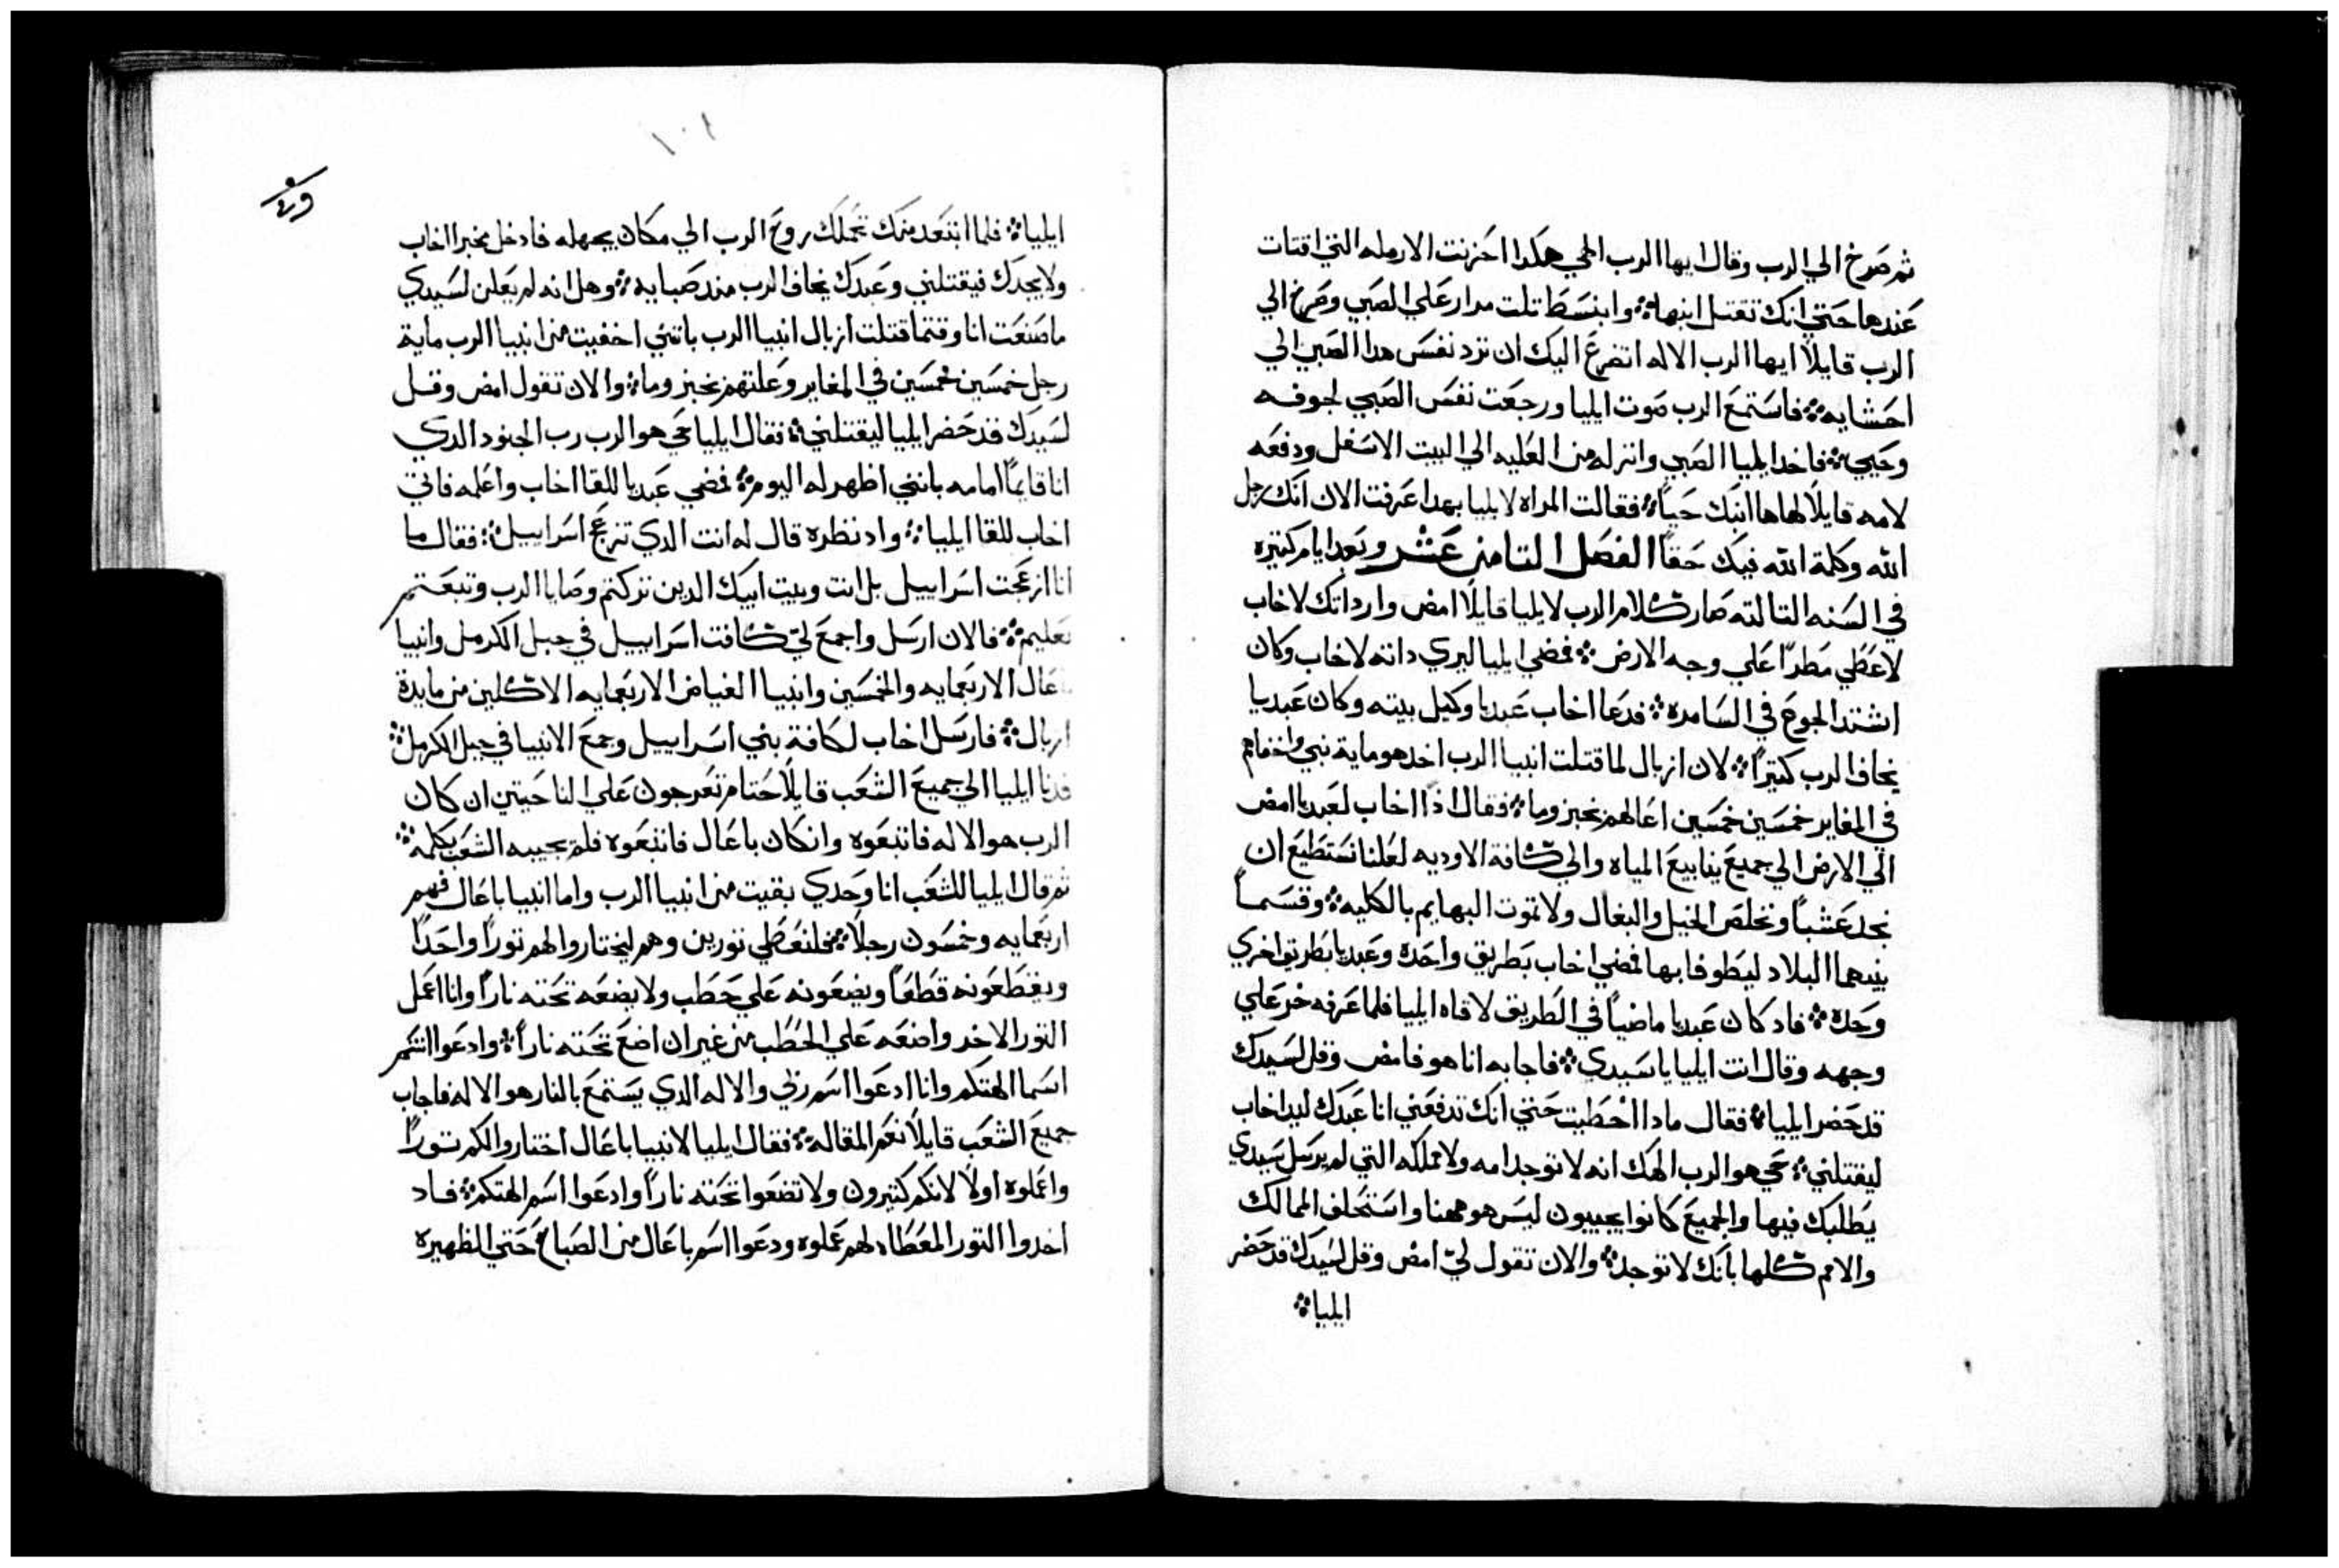 ثم صرخ الي الرب وقال ايها الرب الهي هكدا احزنت الارمله التي اقتات
عندها حتي انك تقتل ابنها ❖ وابنسط تلت مرار علي الصبي وصرخ الي
الرب قايلاً ايها الرب الاله اتضرع اليك ان ترد نفس هدا الصبي الي
احشايه ❖ فاستمع الرب صوت ايليا ورجعت نفس الصبي لجوفه
وحيي ❖ فاخد ايليا الصبي وانزله من العليه الي البيت الاسفل ودفعه
لامه قايلاً لها ها ابنك حياً ❖ فقالت المراه لايليا بهدا عرفت الان انك رجل
الله وكلمة الله فيك حقاً الفصل التامن عشر وبعد ايام كتيره
في السنه التالته صار كلام الرب لايليا قايلاً امض وار داتك لاخاب
لاعطي مطراً علي وجه الارض ❖ فمضي ايليا ليري داته لاخاب وكان
اشتد الجوع في السامره ❖ فدعا اخاب عبديا وكيل بيته وكان عبديا
يخاف الرب كتيراً ❖ لان ازبال لما قتلت انبيا الرب اخد هو ماية نبي واخفاهم
في المغاير خمسين خمسين اعالهم بخبز وما ❖ فقال اداً اخاب لعبديا امض
الي الارض الي جميع ينابيع المياه والي كافة الاوديه لعلنا نستطيع ان
نجد عشباً ونخلص الخيل والبغال ولا تموت البهايم بالكليه ❖ وقسما
بينهما البلاد ليطوفا بها فمضي اخاب بطريق واحده وعبديا بطريق اخري
وحده ❖ فاد كان عبديا ماضياً في الطريق لاقاه ايليا فلما عرفه خر علي
وجهه وقال انت ايليا يا سيدي ❖ فاجابه انا هو فامض وقل لسيدك
قد حضر ايليا ❖ فقال مادا اخطيت حتي انك تدفعني انا عبدك ليد اخاب
ليقتلني ❖ حي هو الرب الهك انه لا توجد امه ولا مملكه التي لم يرسل سيدي
يطلبك فيها والجميع كانوا يجيبون ليس هو ههنا واستحلف الممالك
والامم كلها بانك لا توجد ❖ والان تقول لي امض وقل لسيدك قد حضر
ايليا ❖
١٠١
ايليا ❖ فلما ابتعد منك تحملك روح الرب الي مكان يجهله فادخل مخبرا اخاب
ولا يجدك فيقتلني وعبدك يخاف الرب مند صبايه ❖ وهل انه لم يعلن لسيدي
ما صنعت انا وقتما قتلت ازبال انبيا الرب بانني اخفيت من انبيا الرب ماية
رجل خمسين خمسين في المغاير وعلتهم بخبز وما ❖ والان تقول امض وقل
لسيدك قد حضر ايليا ليقتلني ❖ فقال ايليا حي هو الرب رب الجنود الدي
انا قايماً امامه بانني اظهر له اليوم ❖ فمضي عبديا للقا اخاب واعلمه فاتي
اخاب للقا ايليا ❖ واد نظره قال له انت الدي تزعج اسراييل ❖ فقال ما
انا ازعجت اسراييل بل انت وبيت ابيك الدين تركتم وصايا الرب وتبعتم
بعليم ❖ فالان ارسل واجمع لي كافت اسراييل في جبل الكرمل وانبيا
باعال الاربعمايه والخمسين وانبيا الغياض الاربعمايه الاكلين من مايدة
ازبال ❖ فارسل اخاب لكافة بني اسراييل وجمع الانبيا في جبل الكرمل ❖
فدنا ايليا الي جميع الشعب قايلاً حتام تعرجون علي الناحيتين ان كان
الرب هو الاله فاتبعوه وان كان باعال فاتبعوه فلم يجيبه الشعب بكلمة ❖
ثم قال ايليا للشعب انا وحدي بقيت من انبيا الرب واما انبيا باعال فهم
اربعمايه وخمسون رجلاً ❖ فلنعطي تورين وهم ليختاروا لهم توراً واحداً
ويقطعونه قطعاً ويضعونه علي حطب ولا يضعه تحته ناراً وانا اعمل
التور الاخر واضعه علي الحطب من غير ان اضع تحته ناراً ❖ وادعوا انتم
اسما الهتكم وانا ادعوا اسم ربي والاله الدي يستمع بالنار هو الاله فاجاب
جميع الشعب قايلاً نعم المقاله ❖ فقال ايليا لانبيا باعال اختاروا لكم توراً
واعملوه اولاً لانكم كتيرون ولا تضعوا تحته ناراً وادعوا اسم الهتكم ❖ فاد
اخدوا التور المعطا لهم عملوه ودعوا اسم باعال من الصباح حتي الظهيره